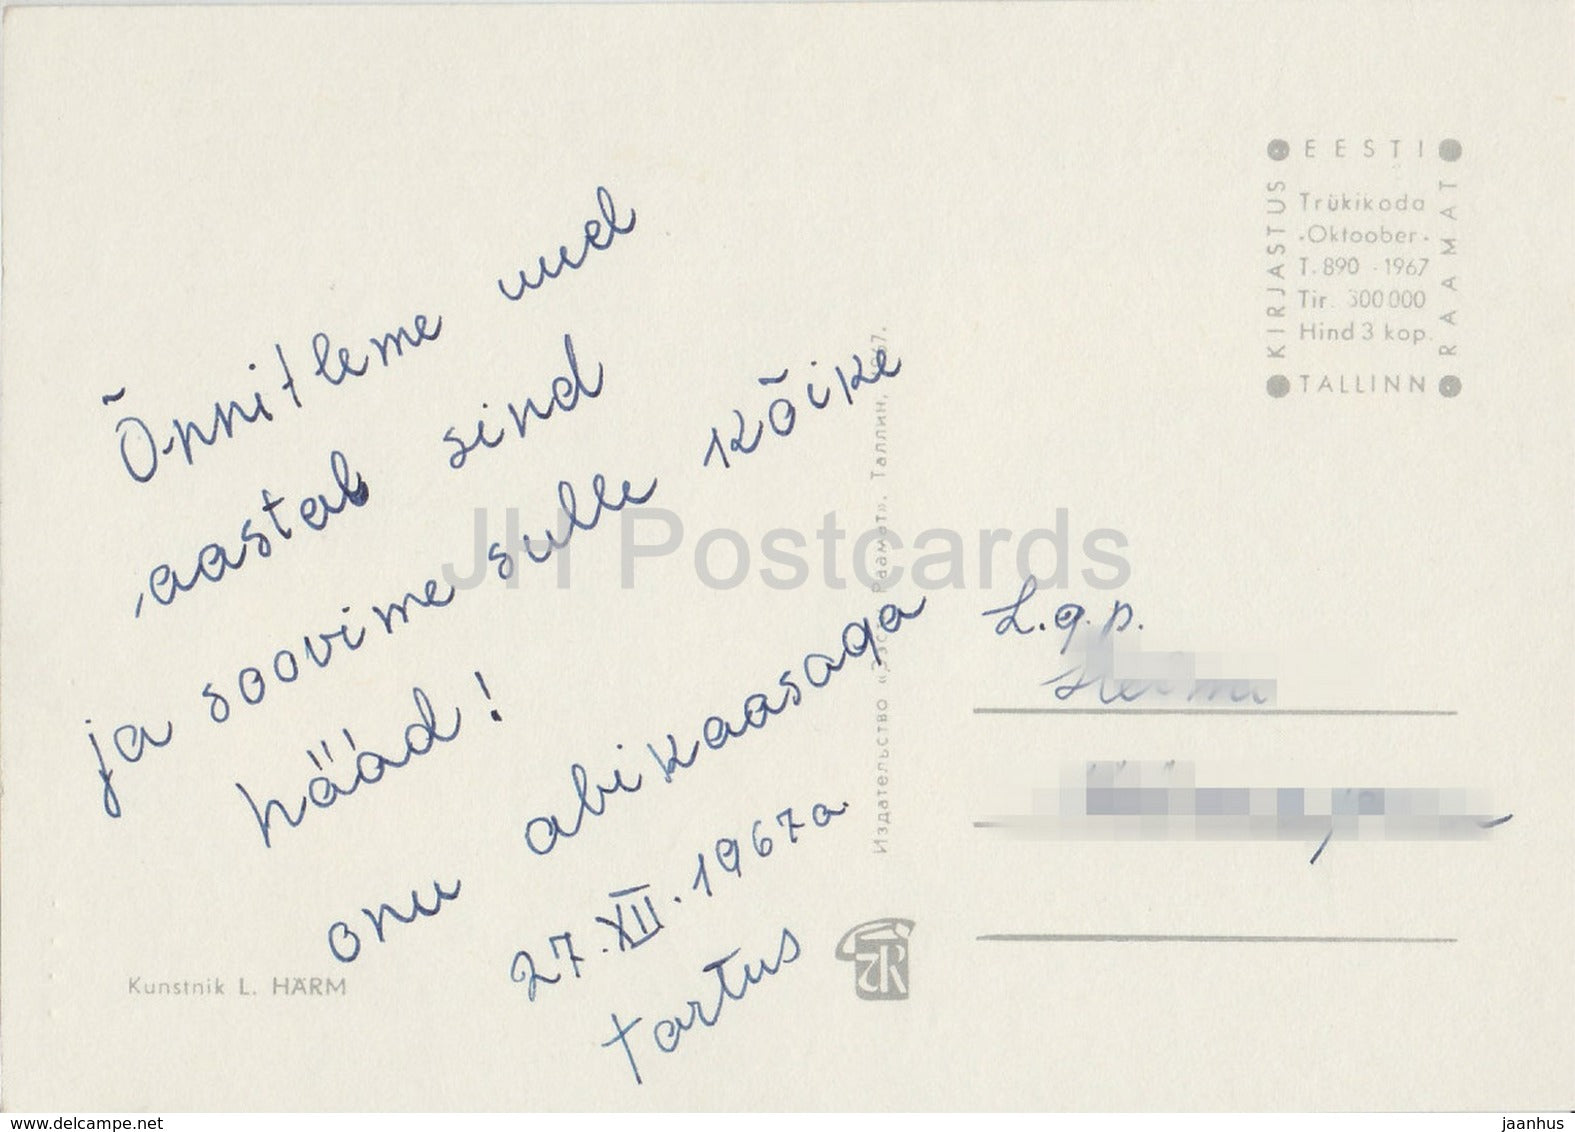 Õnnitleme uuel
aastal sind
ja soovime sulle kõike
hääd!
onu abikaasaga
27.XII.1967a.
Tartus
Kunstnik L. HÄRM
Издательство «Ээсти Раамат». Таллин, 1967.
JH Postcards
EESTI
KIRJASTUS
RAAMAT
Trükikoda
·Oktoober·
T. 890 · 1967
Tir. 300 000
Hind 3 kop.
TALLINN
L.g.p.
www.delcampe.net
jaanhus